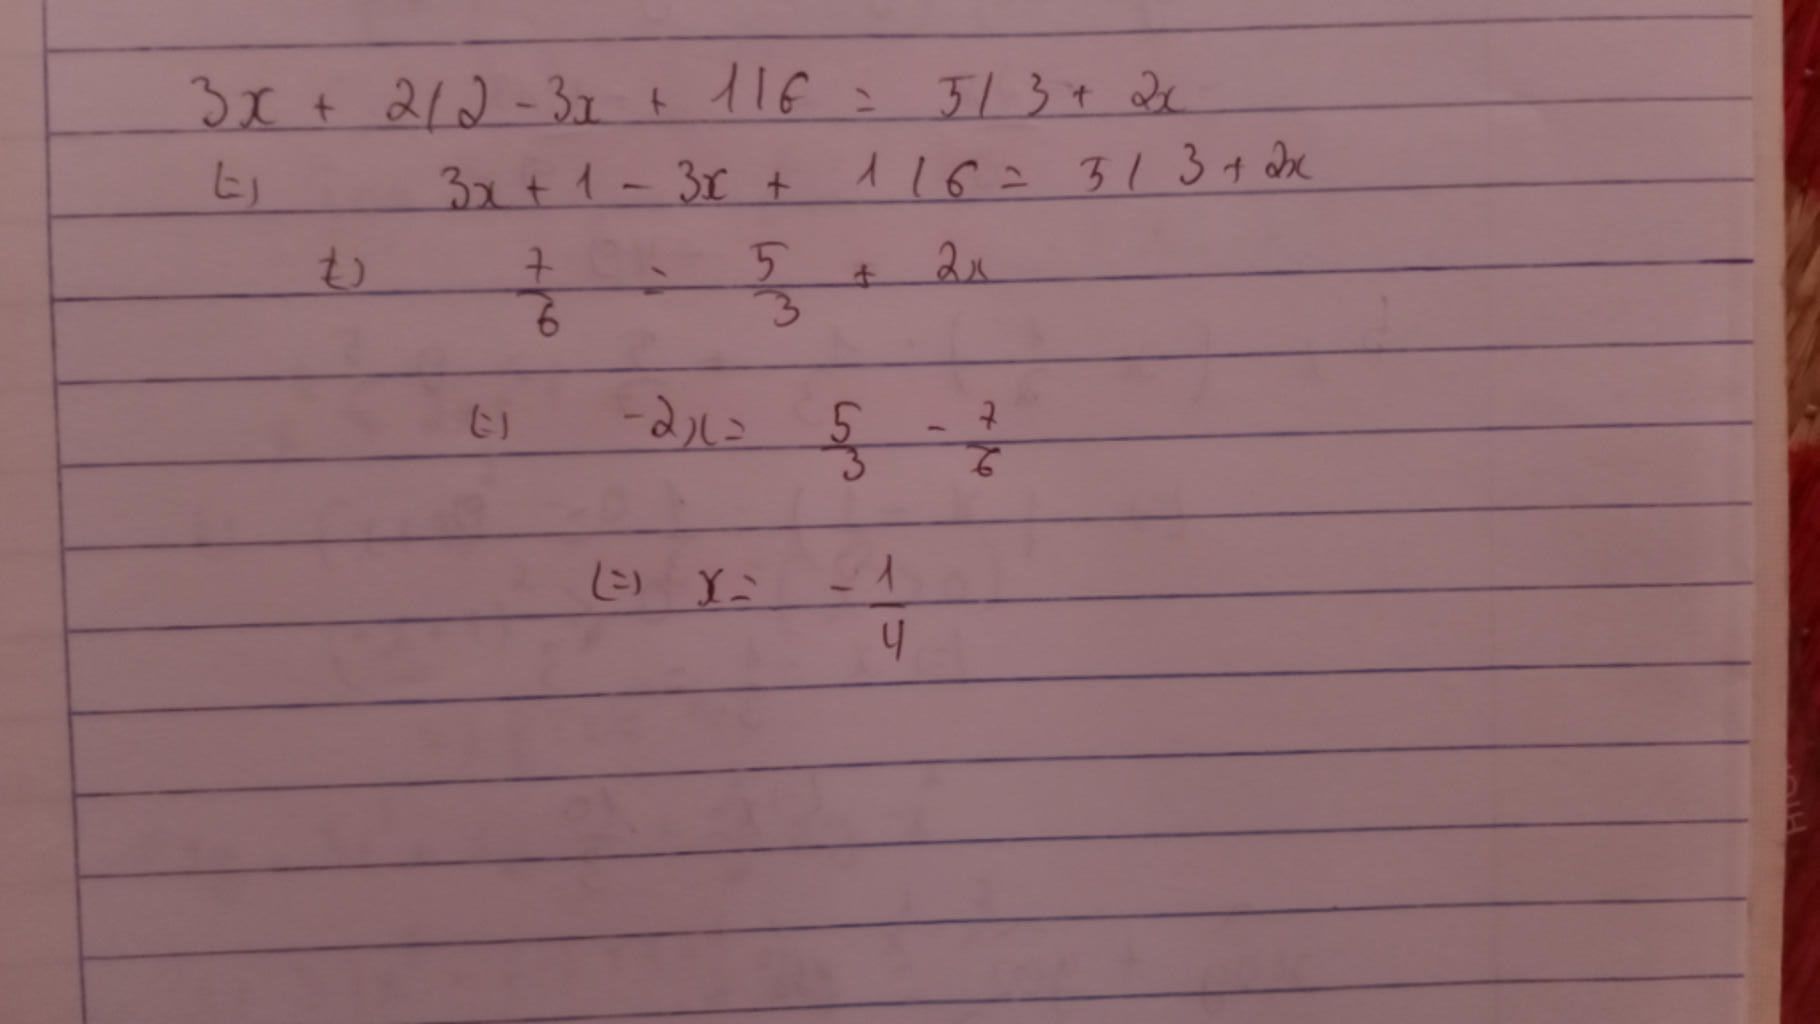 3x + 2/2 - 3x + 1/6 = 5/3 + 2x
(=) 3x + 1 - 3x + 1/6 = 5/3 + 2x
(=) 7/6 = 5/3 + 2x
(=) -2x = 5/3 - 7/6
(=) x = - 1/4